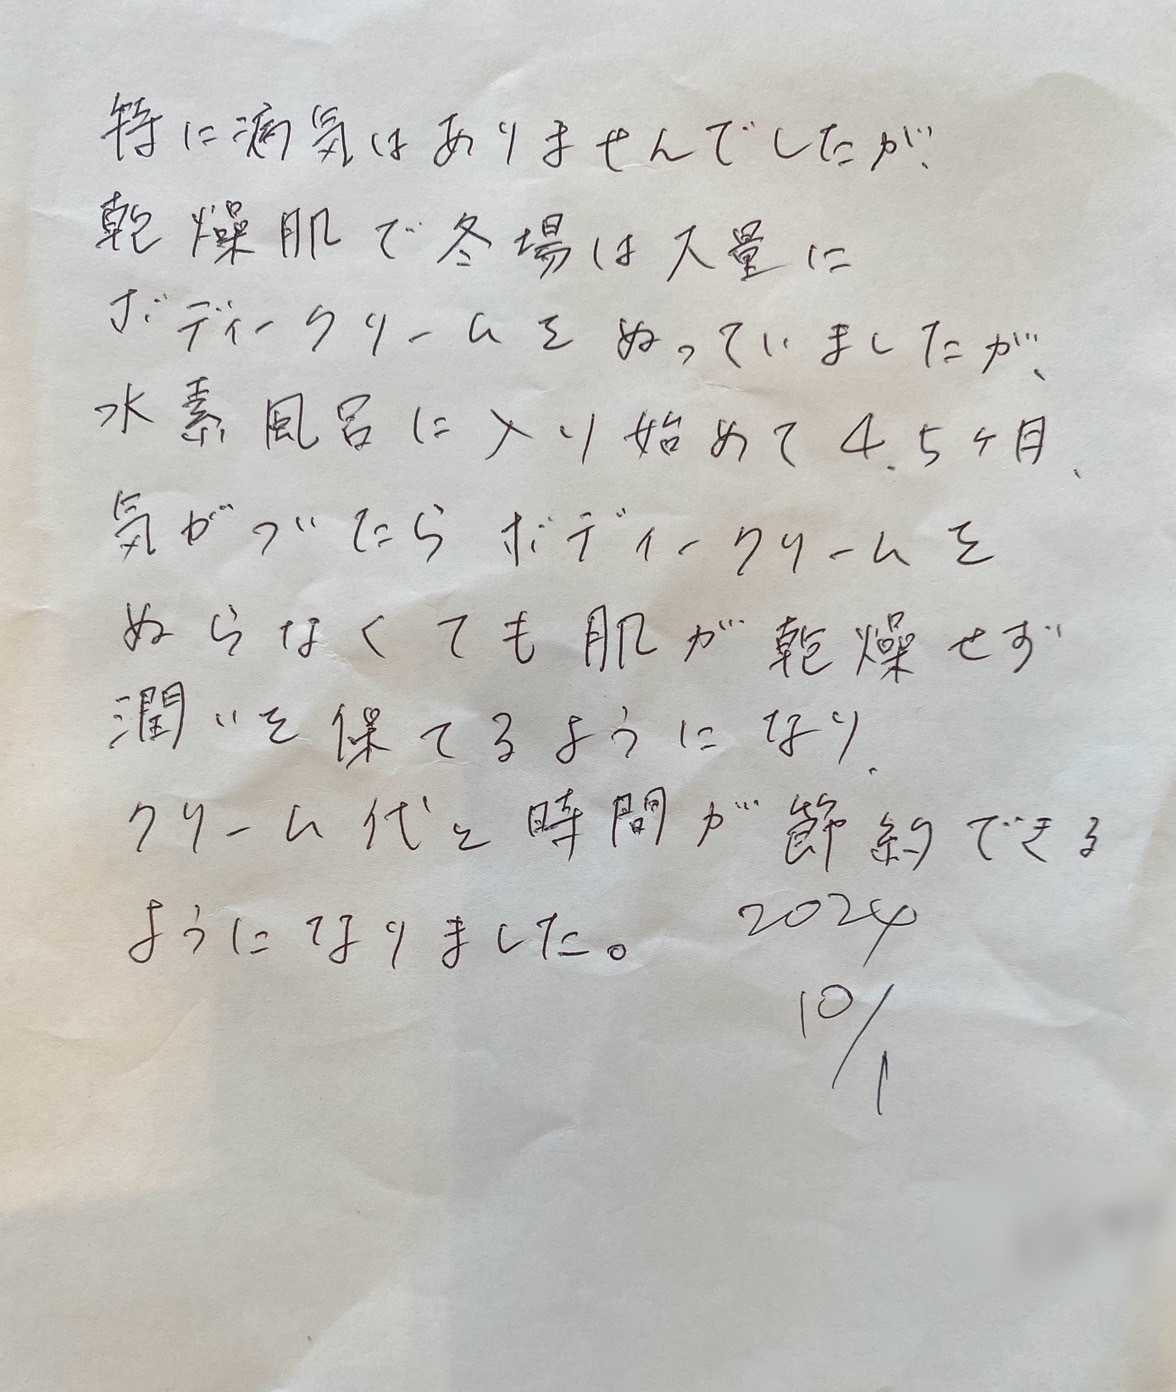 特に病気はありませんでしたが、
乾燥肌で冬場は大量に
ボディークリームをぬっていましたが、
水素風呂に入り始めて4.5ヶ月、
気がづいたらボディークリームを
ぬらなくても肌が乾燥せず
潤いを保てるようになり、
クリーム代と時間が節約できる
ようになりました。
2024
10/1